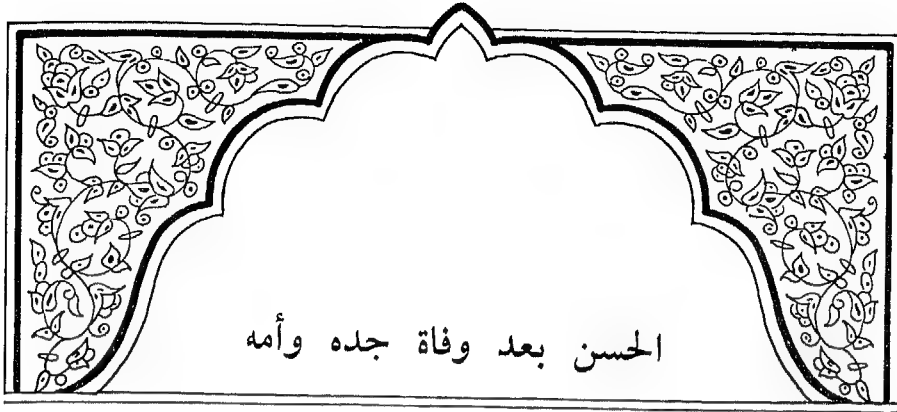 الحسن بعد وفاة جده وأمه